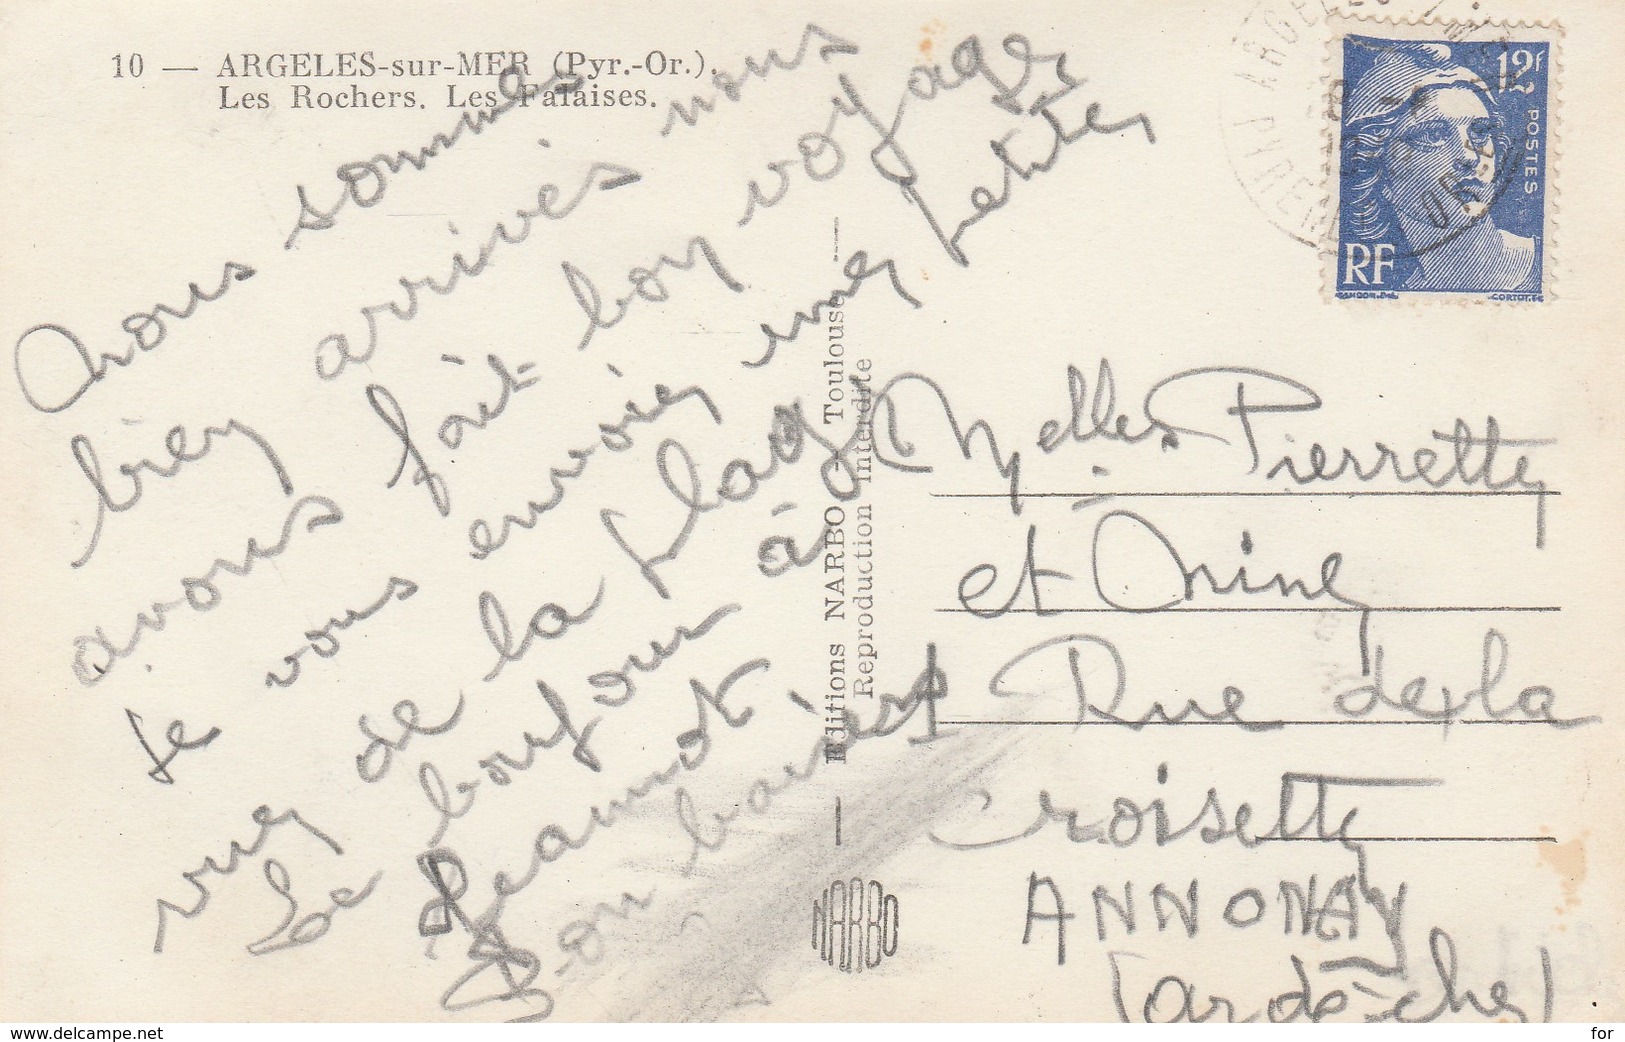 10 — ARGELES-sur-MER (Pyr.-Or.).
Les Rochers. Les Falaises.
Nous sommes
bien arrivés nous
avons fait bon voyage
Je vous envoies une petite
vue de la plage
Le bonjour à
Jeannot
Bon baisers
Editions NARBO - Toulouse —
Reproduction Interdite
NARBO
12f
POSTES
RF
GANDON.DEL
CORTOT.SC
Melles Pierrette
et Nine
Rue de la
Croisette
ANNONAY
(ardèche)
www.delcampe.net
for